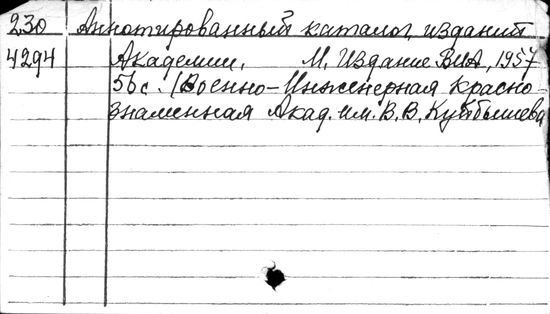 230 Аннотированный каталог изданий
4294 Академии. М, Издание ВИА, 1957
56 с. (Военно-Инженерная красно-
знаменная Акад. им. В. В. Куйбышева